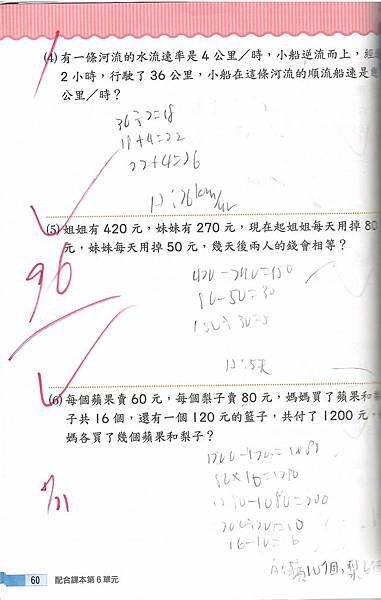 (4) 有一條河流的水流速率是 4 公里／時，小船逆流而上，經
2 小時，行駛了 36 公里，小船在這條河流的順流船速是
公里／時？
36÷2=18
18+4=22
22+4=26
A：26km/hr
(5) 姐姐有 420 元，妹妹有 270 元，現在起姐姐每天用掉 80
元，妹妹每天用掉 50 元，幾天後兩人的錢會相等？
96
420-270=150
80-50=30
150÷30=5
A：5天
(6) 每個蘋果賣 60 元，每個梨子賣 80 元，媽媽買了蘋果和
子共 16 個，還有一個 120 元的籃子，共付了 1200 元，
媽各買了幾個蘋果和梨子？
1200-120=1080
80×16=1280
1280-1080=200
200÷20=10
16-10=6
A：蘋10個，梨6
60 配合課本第 6 單元